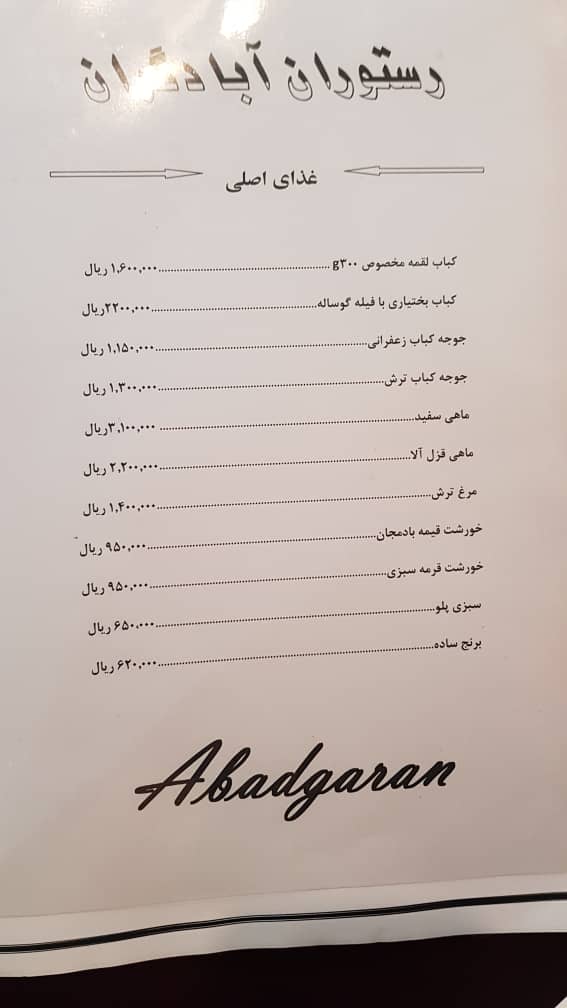 رستوران آبادگران
غذای اصلی
کباب لقمه مخصوص g۳۰۰ ........................................ ۱,۶۰۰,۰۰۰ ریال
کباب بختیاری با فیله گوساله........................................۲۲۰۰,۰۰۰ریال
جوجه کباب زعفرانی........................................۱,۱۵۰,۰۰۰ ریال
جوجه کباب ترش........................................۱,۳۰۰,۰۰۰ ریال
ماهی سفید........................................ ۳,۱۰۰,۰۰۰ریال
ماهی قزل آلا........................................۲,۲۰۰,۰۰۰ ریال
مرغ ترش........................................۱,۴۰۰,۰۰۰ ریال
خورشت قیمه بادمجان........................................۹۵۰,۰۰۰ ریال
خورشت قرمه سبزی........................................۹۵۰,۰۰۰ ریال
سبزی پلو........................................۶۵۰,۰۰۰ ریال
برنج ساده........................................۶۲۰,۰۰۰ ریال
Abadgaran